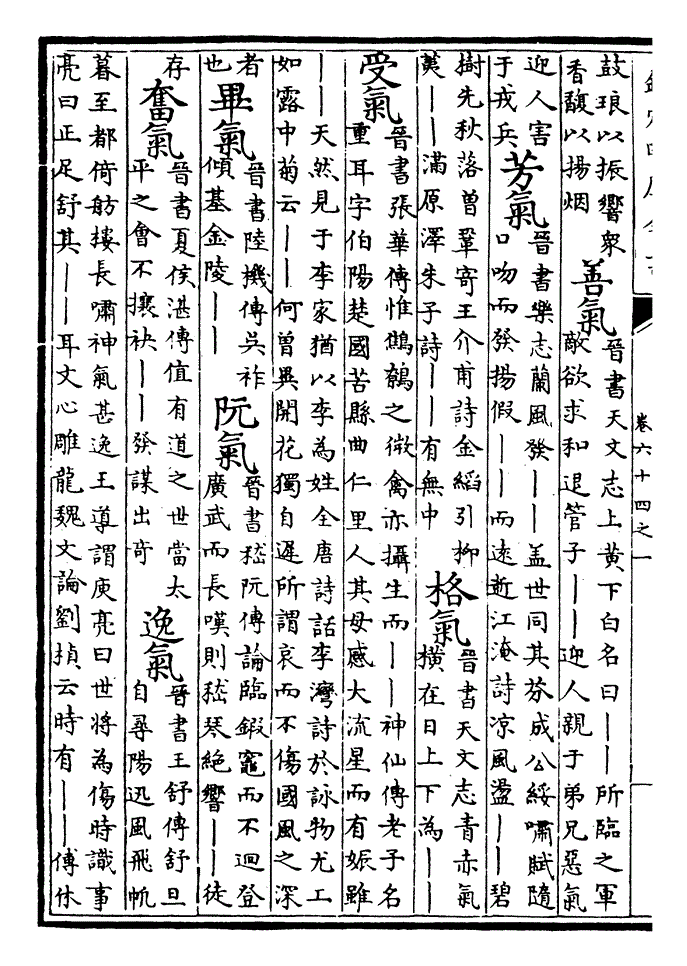 卷六十四之一
鼓琅以振響衆
香馥以揚烟
善氣
晉書天文志上黄下白名曰——所臨之軍
敵欲求和退管子——迎人親于弟兄惡氣
迎人害
于戎兵
芳氣
晉書樂志蘭風發——蓋世同其芬成公綏嘯賦隨
口吻而發揚假——而遠逝江淹詩凉風盪——碧
樹先秋落曾鞏寄王介甫詩金縚引柳
荑——滿原澤朱子詩——有無中
格氣
晉書天文志青赤氣
横在日上下為——
受氣
晉書張華傳惟鷦鷯之微禽亦攝生而——神仙傳老子名
重耳字伯陽楚國苦縣曲仁里人其母感大流星而有娠雖
——天然見于李家猶以李為姓全唐詩話李灣詩於詠物尤工
如露中菊云——何曾異開花獨自遲所謂哀而不傷國風之深
者
也
畢氣
晉書陸機傳吳祚
傾基金陵——
阮氣
晉書嵇阮傳論臨鍛竈而不迴登
廣武而長嘆則嵇琴絶響——徒
存
奮氣
晉書夏侯湛傳值有道之世當太
平之會不攘袂——發謀出奇
逸氣
晉書王舒傳舒旦
自尋陽迅風飛帆
暮至都倚舫樓長嘯神氣甚逸王導謂庾亮曰世將為傷時識事
亮曰正足舒其——耳文心雕龍魏文論劉楨云時有——傅休